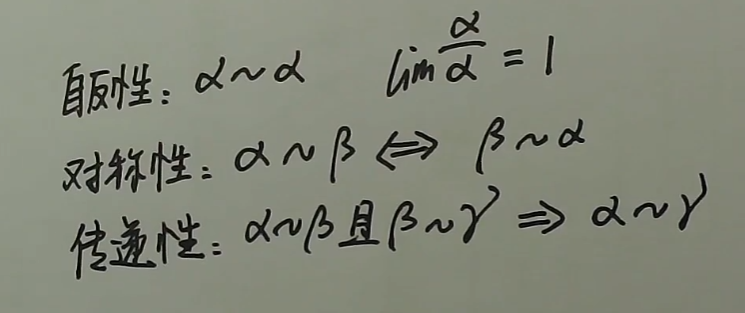 自反性：α~α lim α/α = 1
对称性：α~β ⇔ β~α
传递性：α~β且β~γ ⇒ α~γ